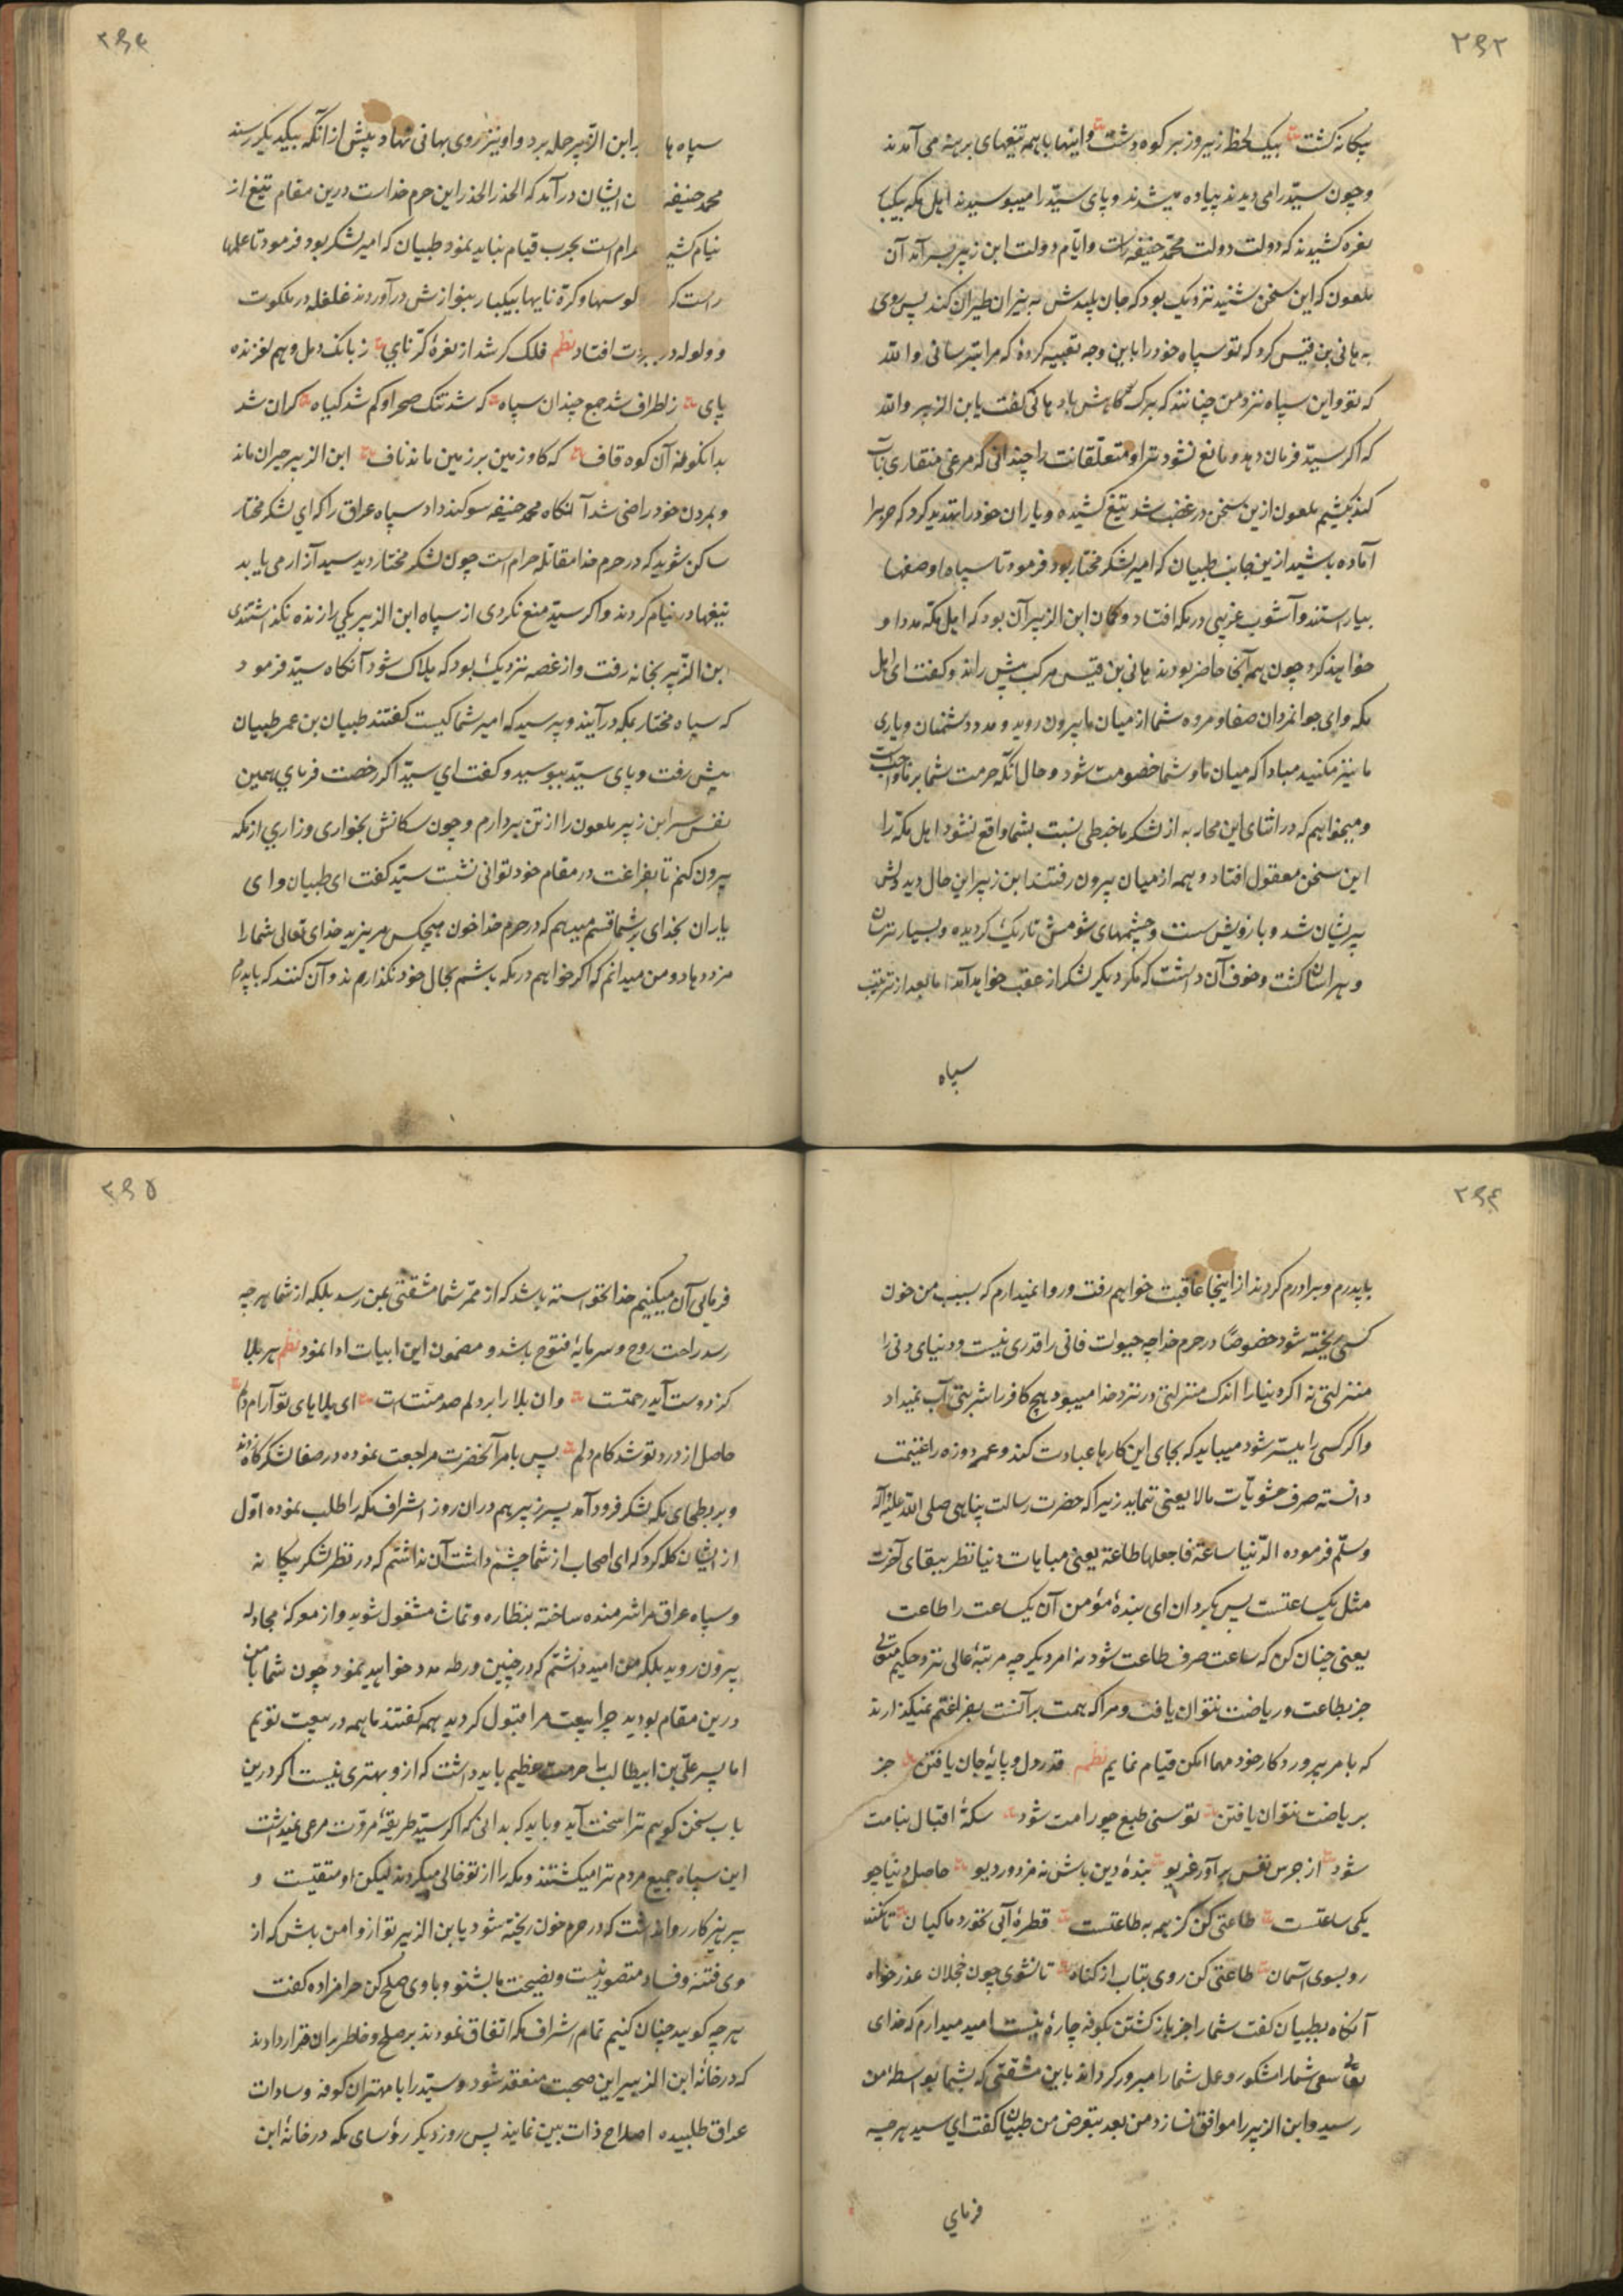 ۲۹۲
بیکانه کشت بیک لحظ زیر و زبر کوه و دشت و اینها با همه تیغهای برهنه می آمدند
و چون سید را می دیدند پیاده میشدند و پای سید را میبوسیدند اهل مکه بیکبا
نعره کشیدند که دولت دولت محمد حنیفه است و ایام دولت ابن زبیر بسر آمد آن
ملعون که این سخن شنید نزدیک بود که جان پلیدش به نیران طیران کند پس روی
به هانی بن قیس کرد که تو سپاه خود را باین وجه تعبیه کرده که مرا بترسانی والله
که تو و این سپاه نزد من چنانند که برک کاهی باد هانی کفت یا بن الزبیر والله
که اکر سید فرمان دهد و مانع نشود ترا و متعلقانت را چندانی که مرغی منقاری بآب
کند بکشیم ملعون ازین سخن در غضب شد تیغ کشیده و یاران خود را تهدید کرد که حرب را
آماده باشید ازین جانب طبیان که امیر لشکر مختار بود فرمود تا سپاه او صفها
بیاراستند و آشوب غریبی در مکه افتاد و کمان ابن الزبیر آن بود که اهل مکه مدد او
خواهند کرد چون همه آنجا حاضر بودند هانی بن قیس مرکب پیش راند و کفت ای اهل
مکه و ای جوانمردان صفا و مروه شما از میان ما بیرون روید و مدد دشمنان و یاری
ما نیز مکنید مبادا که میان ما و شما خصومت شود و حال آنکه حرمت شما بر ما واجب است
و میخواهیم که در اثنای این محاربه از لشکر ما خبطی نسبت بشما واقع نشود اهل مکه را
این سخن معقول افتاد و همه از میان بیرون رفتند ابن زبیر این حال دید دلش
پریشان شد و بازویش سست و چشمهای شومش تاریک کردیده و بسیار ترسان
و هراسان کشت و خوف آن داشت که مکر دیکر لشکر از عقب خواهد آمد اما بعد از ترتیب
سپاه
سپاه برابن الزبیر حمله برد و او نیز روی بهانی نهاد پیش از آنکه بیکدیکر رسند
محمد حنیفه ایشان در آمد که الحذر الحذر این حرم خداست درین مقام تیغ از
نیام کشیدن حرام است بحرب قیام نباید نمود طبیان که امیر لشکر بود فرمود تا علمها
راست کردند کوسها و کره نایها بیکبار بنوازش در آوردند غلغله در ملکوت
و ولوله در افتاد نظم فلک کر شد از نعره کرنای ز بانک دهل وهم لغزنده
پای ز اطراف شد جمع چندان سپاه که شد تنک صحرا و کم شد کیاه کران شد
بدانکونه آن کوه قاف که کاو زمین بر زمین ماند ناف ابن الزبیر حیران ماند
و بمردن خود راضی شد آنکاه محمد حنیفه سوکند داد سپاه عراق را که ای لشکر مختار
ساکن شوید که در حرم خدا مقاتله حرام است چون لشکر مختار دید سید آزار می یابد
تیغها در نیام کردند و اکر سید منع نکردی از سپاه ابن الزبیر یکی را زنده نکذاشتندی
ابن الزبیر بخانه رفت و از غصه نزدیک بود که هلاک شود آنکاه سید فرمود
که سپاه مختار بمکه در آیند و پرسید که امیر شما کیست کفتند طبیان بن عمر طبیان
پیش رفت و پای سید ببوسید و کفت ای سید اکر رخصت فرمای همین
نفس سر ابن زبیر ملعون را از تن بردارم و چون سکانش بخواری و زاری از مکه
بیرون کنم تا بفراغت در مقام خود توانی نشست سید کفت ای طبیان و ای
یاران بخدای بر شما قسم میدهم که در حرم خدا خون هیچکس مریزید خدای تعالی شما را
مزد دهاد و من میدانم که اکر خواهم در مکه باشم بحال خود نکذارم ند و آن کنند که با پدرم
با پدرم و برادرم کردند از اینجا عاقبت خواهم رفت و روا نمیدارم که بسبب من خون
کسی ریخته شود خصوصا در حرم خدا چه حیوات فانی را قدری نیست و دنیای دنی را
منزلتی نه اکر دنیا را اندک منزلتی در نزد خدا میبود هیچ کافر را شربتی آب نمیداد
و اکر کسی را میسر شود میباید که بجای این کارها عبادت کند و عمر دو روزه را غنیمت
دانسته صرف مشویات مالا یعنی ننماید زیرا که حضرت رسالت پناهی صلی الله علیه و آله
وسلم فرموده الدنیا ساعة فاجعلها طاعة یعنی مبابات دنیا نظر ببقای آخرت
مثل یکساعتست پس بکردان ای بنده مؤمن آن یکساعت را طاعت
یعنی چنان کن که ساعت صرف طاعت شود نه امر دیکر چه مرتبه عالی نزد حکیم متعالی
جز بطاعت و ریاضت نتوان یافت و مرا که همت بر آنست بفراغتم نمیکذارند
که بامر پروردکار خود مهما امکن قیام نمایم نظم قدر دل و پایه جان یافتن جز
بریاضت نتوان یافتن توسنی طبع چو رامت شود سکه اقبال بنامت
شود از جرس نفس برآور غریو بنده دین باش نه مزدور دیو حاصل دنیا چو
یکی ساعتست طاعتی کن کز همه به طاعتست قطره آبی نخورد ماکیان تا نکند
رو بسوی آسمان طاعتی کن روی بتاب از کناه تا نشوی چون خجلان عذر خواه
آنکاه بطبیان کفت شما را جز باز کشتن بکوفه چاره نیست امید میدارم که خدای
تعالی سعی شما را مشکور و عمل شما را مبرور کرداند باین مشقتی که بشما بواسطه من
رسید و ابن الزبیر را موافق سازد من بعد بتعرض من طبیان کفت ای سید هر چه
فرمای
۲۹۵
فرمایی آن میکنیم خدا نخواسته باشد که از ممر شما مشقتی بمن رسد بلکه از شما هر چه
رسد راحت روح و سرمایه فتوح باشد و مضمون این ابیات ادا نمود نظم هر بلا
کز دوست آید رحمتست وان بلا را بر دلم صد منتست ای بلایای تو آرام دلم
حاصل از درد تو شد کام دلم پس بامر آنحضرت مراجعت نموده در صفا لشکرکاه زدند
و بر بطحای مکه لشکر فرود آمد پسر زبیر هم در ان روز اشراف مکه را طلب نموده اول
از ایشان کله کرد که ای اصحاب از شما چشم داشت آن نداشتم که در نظر لشکر بیکانه
و سپاه عراق مرا شرمنده ساخته بنظاره و تماشا مشغول شوید و از معرکه مجادله
بیرون روید بلکه من امید داشتم که در چنین ورطه مدد خواهید نمود چون شما با من
درین مقام بودید چرا بیعت مرا قبول کردید همه کفتند ما همه در بیعت توییم
اما پسر علی بن ابیطالب را حرمت عظیم باید داشت که ازو بهتری نیست اکر درین
باب سخن کوییم ترا سخت آید و باید که بدانی که اکر سید طریقه مروت مرعی نمیداشت
این سپاه جمیع مردم ترا میکشتند و مکه را از تو خالی میکردند لیکن او متقیست و
پرهیزکار روا نداشت که در حرم خون ریخته شود یا بن الزبیر تو ازو امن باش که از
وی فتنه و فساد متصور نیست و نصیحت ما بشنو و با وی صلح کن حرامزاده کفت
هر چه کویید چنان کنیم تمام اشراف مکه اتفاق نمودند بر صلح و خاطر بران قرار دادند
که در خانه ابن الزبیر این صحبت منعقد شود و سید را با مهتران کوفه و سادات
عراق طلبیده اصلاح ذات بین نمایند پس روز دیکر رؤسای مکه در خانه ابن